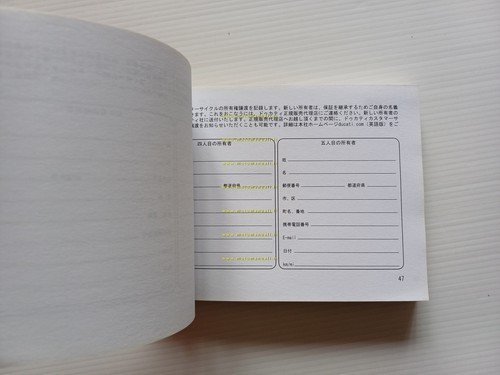 ーサイクルの所有権譲渡を記録します。新しい所有者は、保証を継承するためご自身の名義
ます。これをおこなうには、ドゥカティ正規販売代理店にご連絡ください。新しい所有者の
ティ社に送付いたします。正規販売代理店へお越し頂くまでの間に、ドゥカティカスタマーサ
譲渡をお知らせいただくことも可能です。詳細は本社ホームページducati.com（英語版）をご
四人目の所有者
都道府県
五人目の所有者
姓
名
郵便番号 都道府県
市、区
町名、番地
携帯電話番号
E-mail
日付
km/mi
47